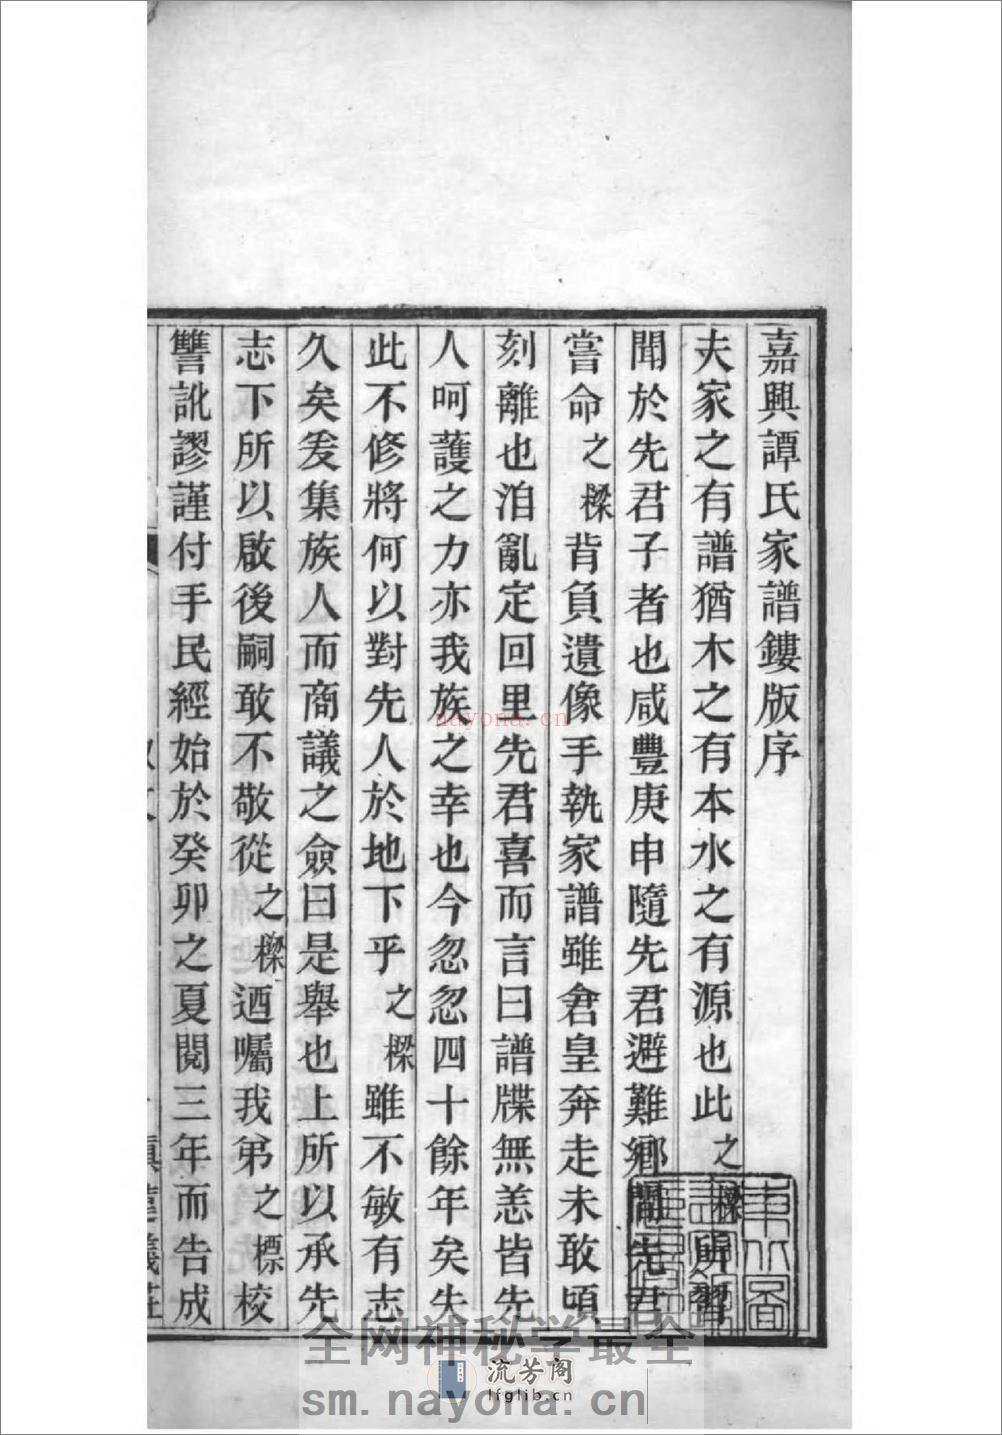 嘉興譚氏家譜鏤版序
夫家之有譜猶木之有本水之有源也此之樑所習
聞於先君子者也咸豐庚申隨先君避難鄉間先君
嘗命之樑背負遺像手執家譜雖倉皇奔走未敢頃
刻離也洎亂定回里先君喜而言曰譜牒無恙皆先
人呵護之力亦我族之幸也今忽忽四十餘年矣失
此不修將何以對先人於地下乎之樑雖不敏有志
久矣爰集族人而商議之僉曰是舉也上所以承先
志下所以啟後嗣敢不敬從之樑迺囑我弟之標校
讐訛謬謹付手民經始於癸卯之夏閱三年而告成
慎遠義莊
nayona.cn
全网神秘学最全
流芳阁
lfglib.cn
sm.nayona.cn